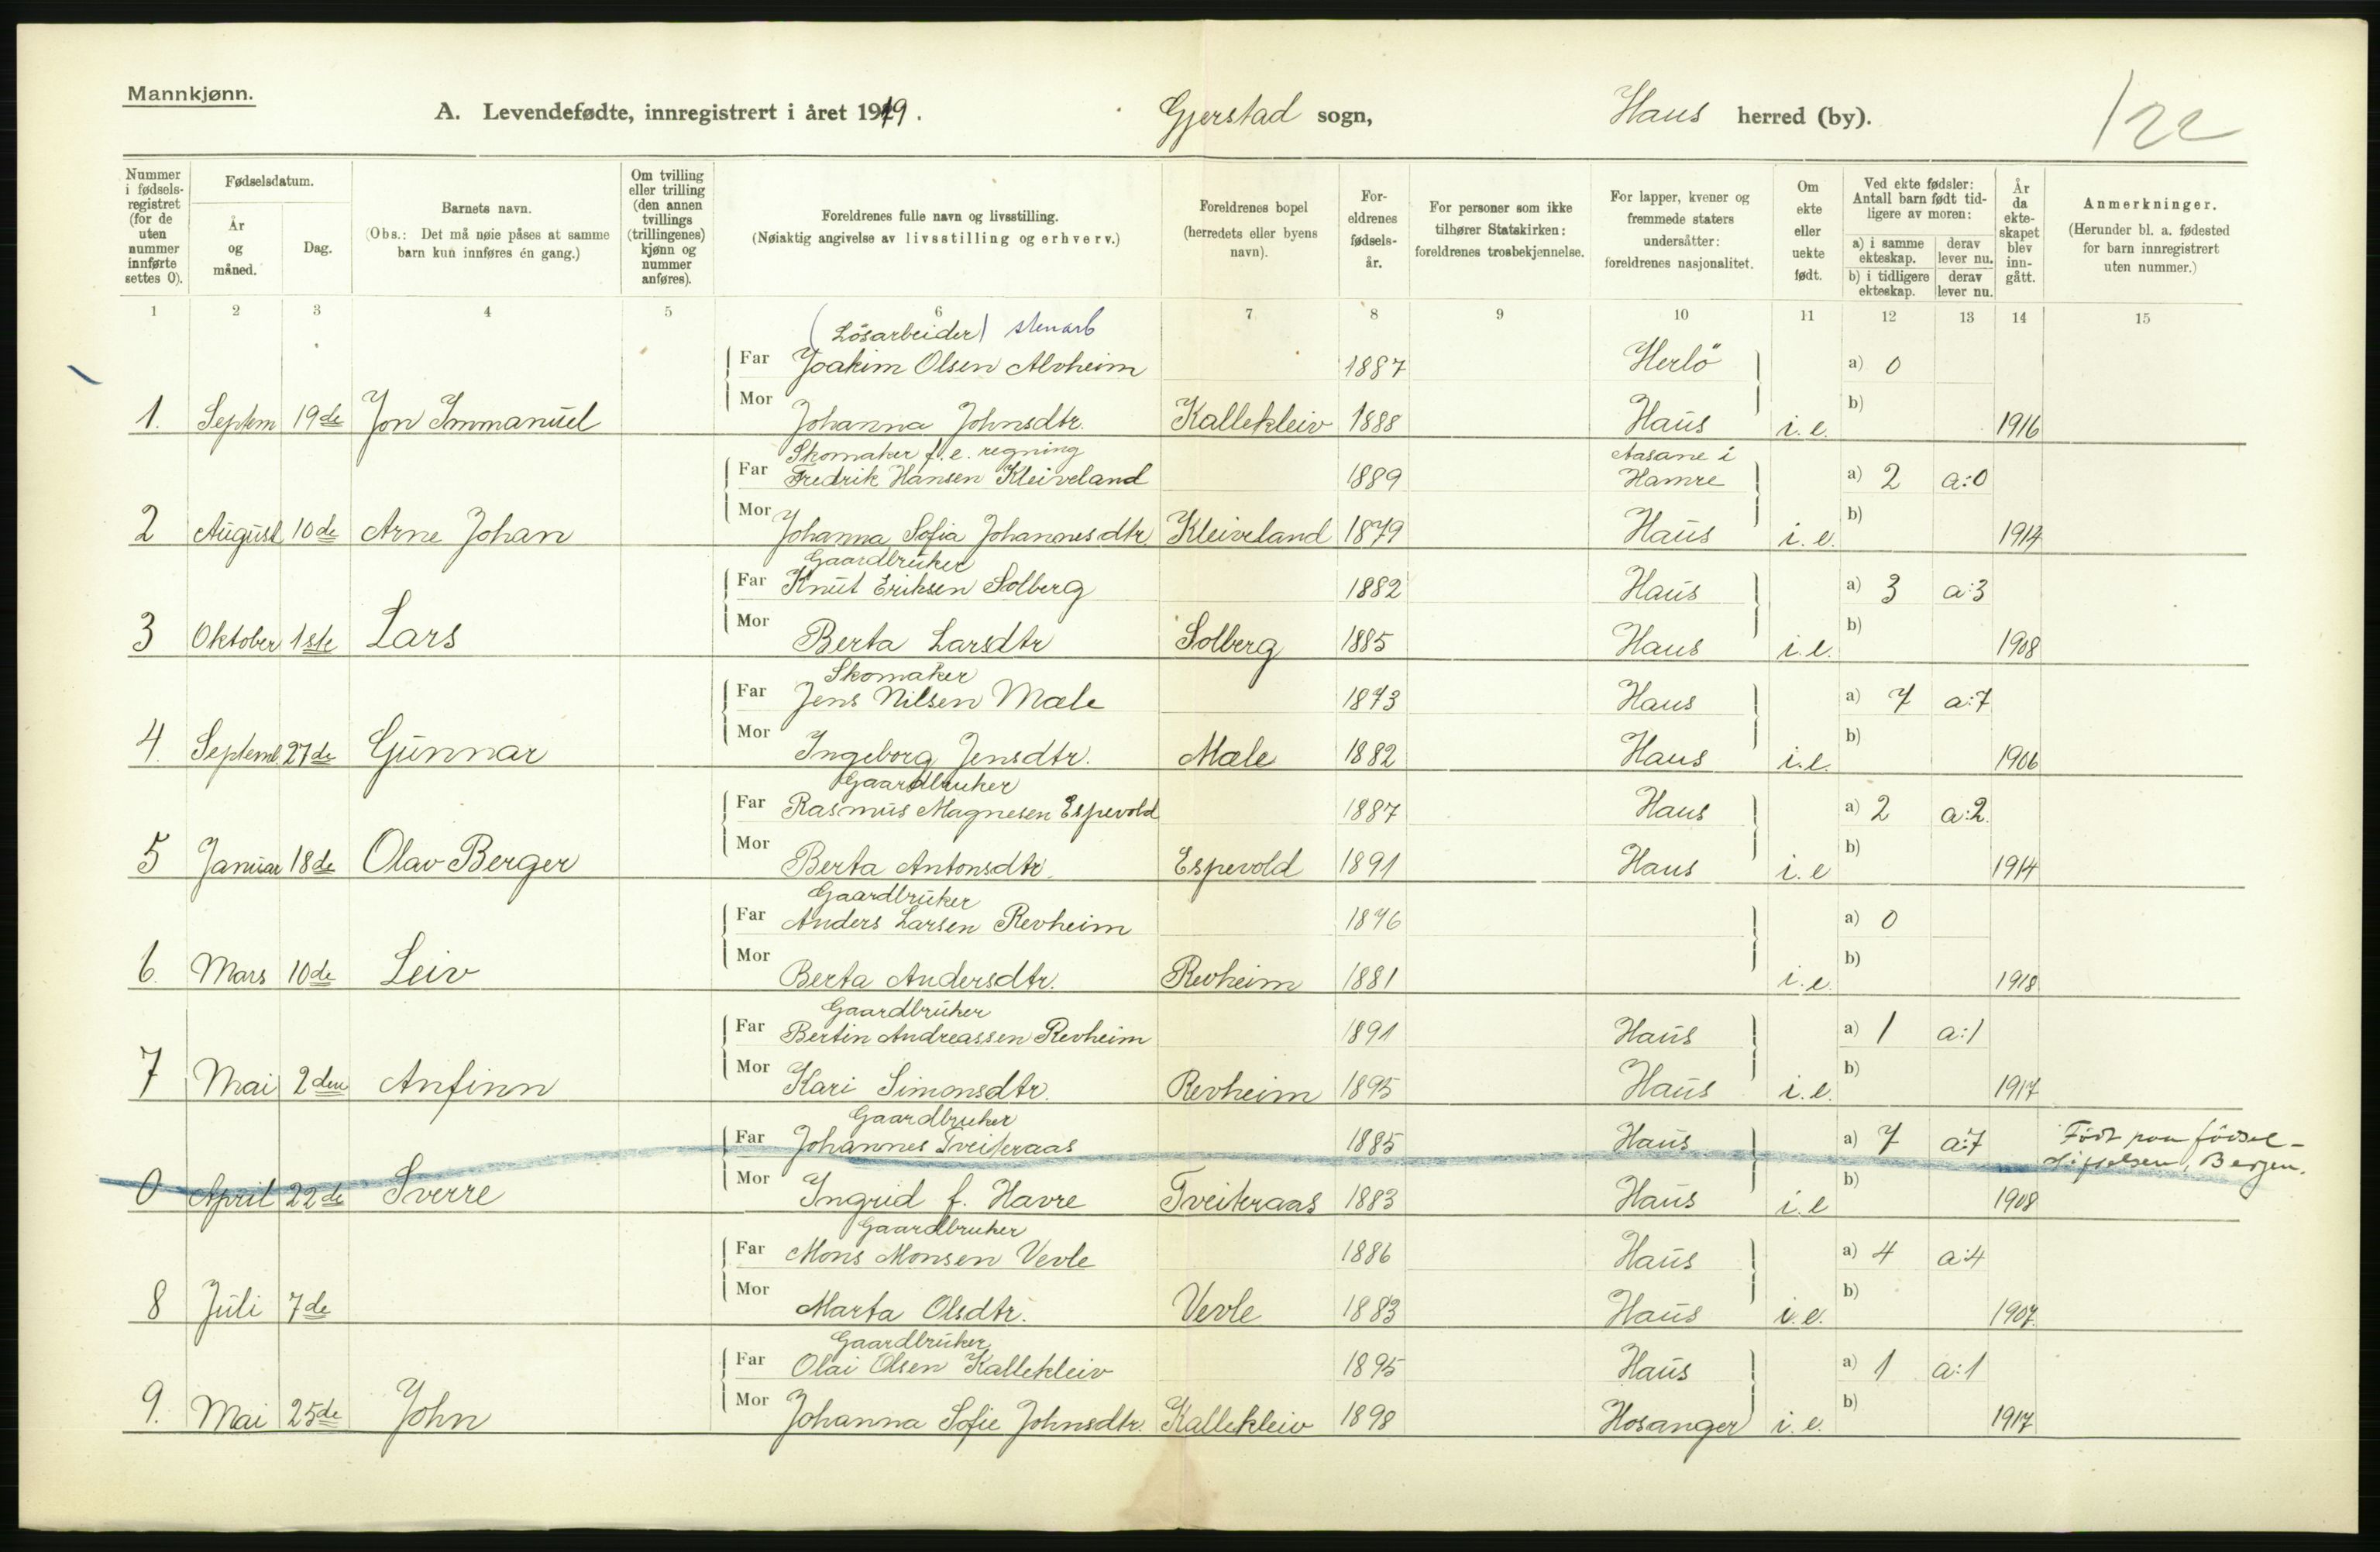 Mannkjønn.
A. Levendefødte, innregistrert i året 1919. Gjerstad sogn, Haus herred (by). 122
Nummer i fødselsregistret (for de uten nummer innførte settes 0).
Fødselsdatum.
År og måned.
Dag.
Barnets navn.
(Obs.: Det må nøie påses at samme barn kun innføres én gang.)
Om tvilling eller trilling (den annen tvillings (trillingenes) kjønn og nummer anføres).
Foreldrenes fulle navn og livsstilling.
(Nøiaktig angivelse av livsstilling og erhverv.)
Foreldrenes bopel (herredets eller byens navn).
Foreldrenes fødselsår.
For personer som ikke tilhører Statskirken: foreldrenes trosbekjennelse.
For lapper, kvener og fremmede staters undersåtter: foreldrenes nasjonalitet.
Om ekte eller uekte født.
Ved ekte fødsler: Antall barn født tidligere av moren:
a) i samme ekteskap. derav lever nu.
b) i tidligere ekteskap. derav lever nu.
År da ekteskapet blev inngått.
Anmerkninger.
(Herunder bl. a. fødested for barn innregistrert uten nummer.)
1 2 3 4 5 6 7 8 9 10 11 12 13 14 15
(Lösarbeider) stenarb
Far Joakim Olsen Alvheim 1887 Herlö a) 0
1. Septem 19de Jon Immanuel Mor Johanna Johnsdtr. Kallekleiv 1888 Haus i.e. b) 1916
Skomaker f. e. regning Aasane i
Far Fredrik Hansen Kleiveland 1889 Hamre a) 2 a:0
2 August 10de Arne Johan Mor Johanna Sofia Johannesdtr. Kleiveland 1879 Haus i.e. b) 1914
Gaardbruker
Far Knut Eriksen Solberg 1882 Haus a) 3 a:3
3 Oktober 1ste Lars Mor Berta Larsdtr Solberg 1885 Haus i.e. b) 1908
Skomaker
Far Jens Nilsen Mæle 1873 Haus a) 7 a:7
4. Septemb. 27de Gunnar Mor Ingeborg Jensdtr. Mæle 1882 Haus i.e. b) 1906
Gaardbruker
Far Rasmus Magnesen Espevold 1887 Haus a) 2 a:2.
5 Januar 18de Olav Berger Mor Berta Antonsdtr. Espevold 1891 Haus i.e b) 1914
Gaardbruker
Far Anders Larsen Revheim 1876 a) 0
6. Mars 10de Leiv Mor Berta Andersdtr. Revheim 1881 i.e. b) 1918
Gaardbruker
Far Bertin Andreassen Revheim 1891 Haus a) 1 a:1
7 Mai 2den Anfinn Mor Kari Simonsdtr. Revheim 1895 Haus i.e. b) 1917
Gaardbruker
Far Johannes Tveiteraas 1885 Haus a) 7 a:7 Födt paa födsel-
stiftelsen, Bergen.
0 April 22de Sverre Mor Ingrid f. Havre Tveiteraas 1883 Haus i.e b) 1908
Gaardbruker
Far Mons Monsen Vevle 1886 Haus a) 4 a:4
8 Juli 7de Mor Marta Olsdtr. Vevle 1883 Haus i.e. b) 1907.
Gaardbruker
Far Olai Olsen Kallekleiv 1895 Haus a) 1 a:1
9. Mai 25de John Mor Johanna Sofie Johnsdtr. Kallekleiv 1898 Hosanger i.e. b) 1917